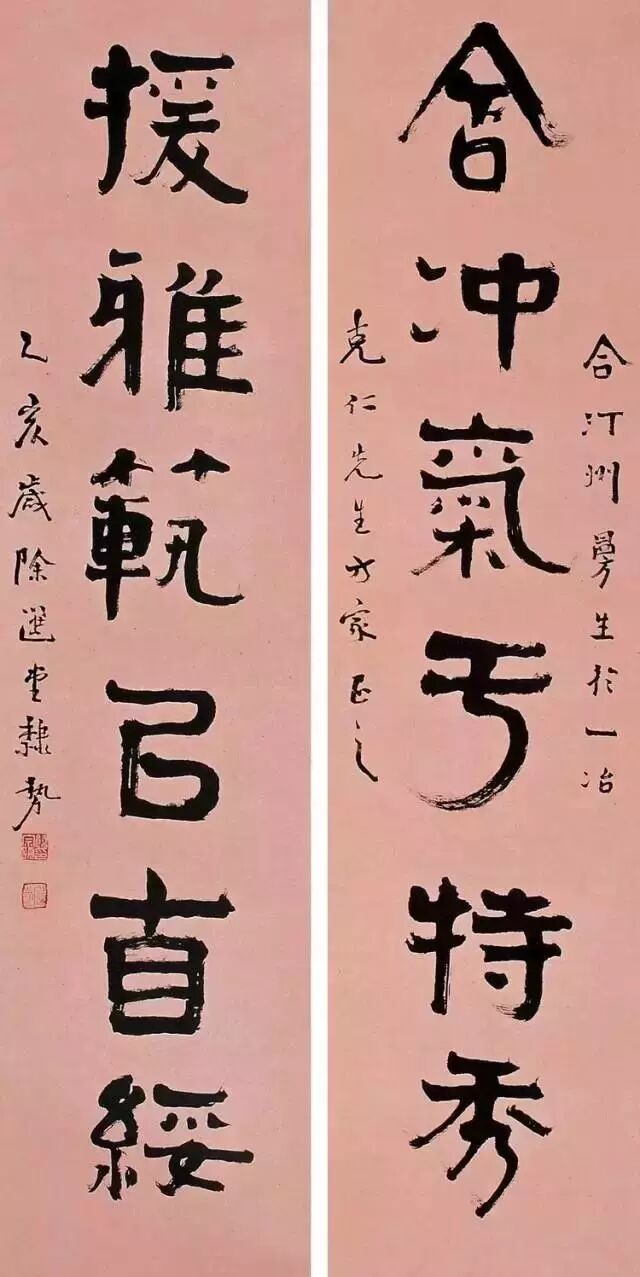 合汀州曼生於一冶
含冲氣亐特秀
克仁先生方家正之
援雅範㠯直綏
乙亥歲除選堂隸勢